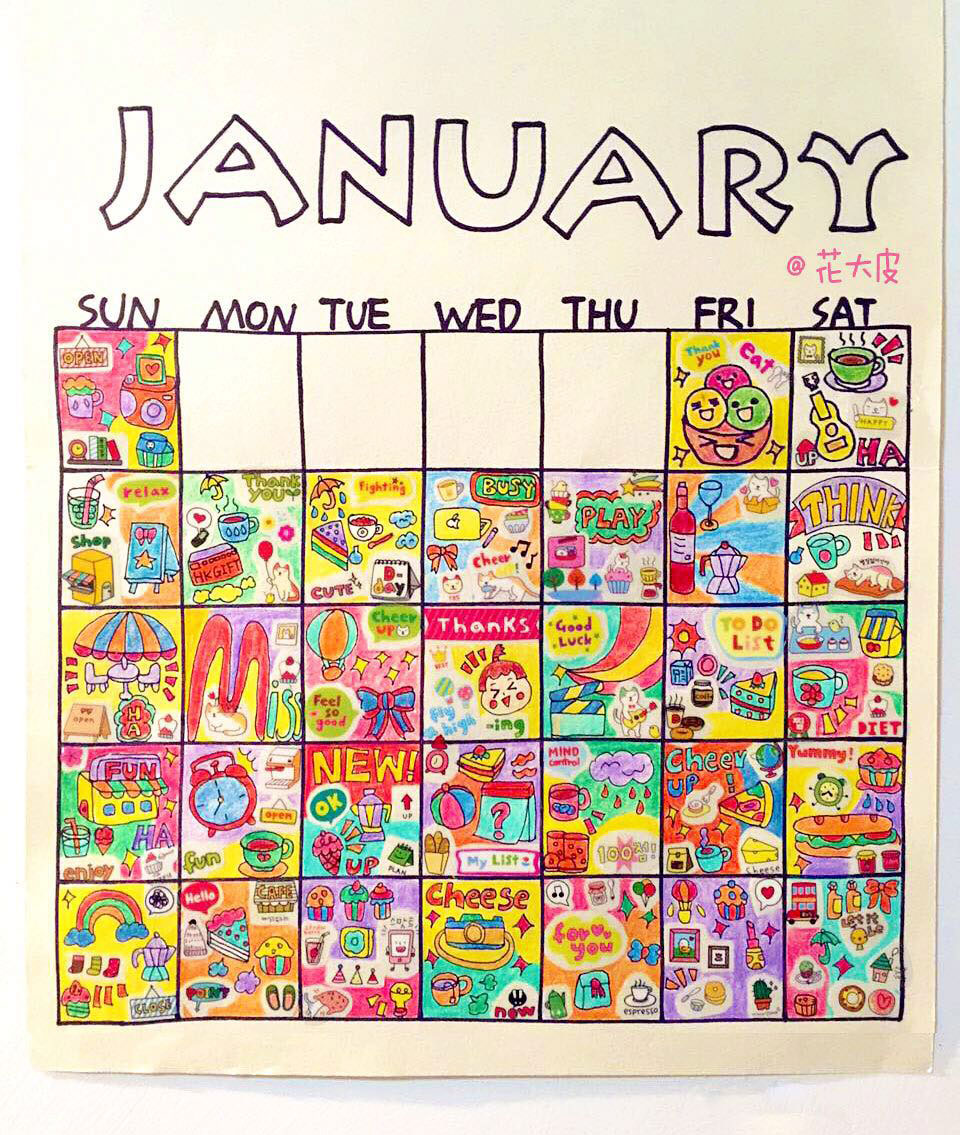 JANUARY
@花大皮
SUN MON TUE WED THU FRI SAT
OPEN
Thank you
Eat
HAPPY
UP
HA
relax
Shop
Thank you
HK GIFT
Fighting
CUTE
D-Day
BUSY
Cheer
YES
PLAY
THINK
open
HA
Miss
Cheer up
Feel so good
Thanks
BEST
fly high
-ing
Good Luck
TO DO List
DIET
FUN
HA
enjoy
open
fun
NEW!
OK
UP
UP
PLAN
?
My List
MIND control
100점!
Cheer UP!
Cheese
Yummy!
CLOSE
Hello
CAFE
POINT
스마트
Cheese
now
for you
espresso
LET IT